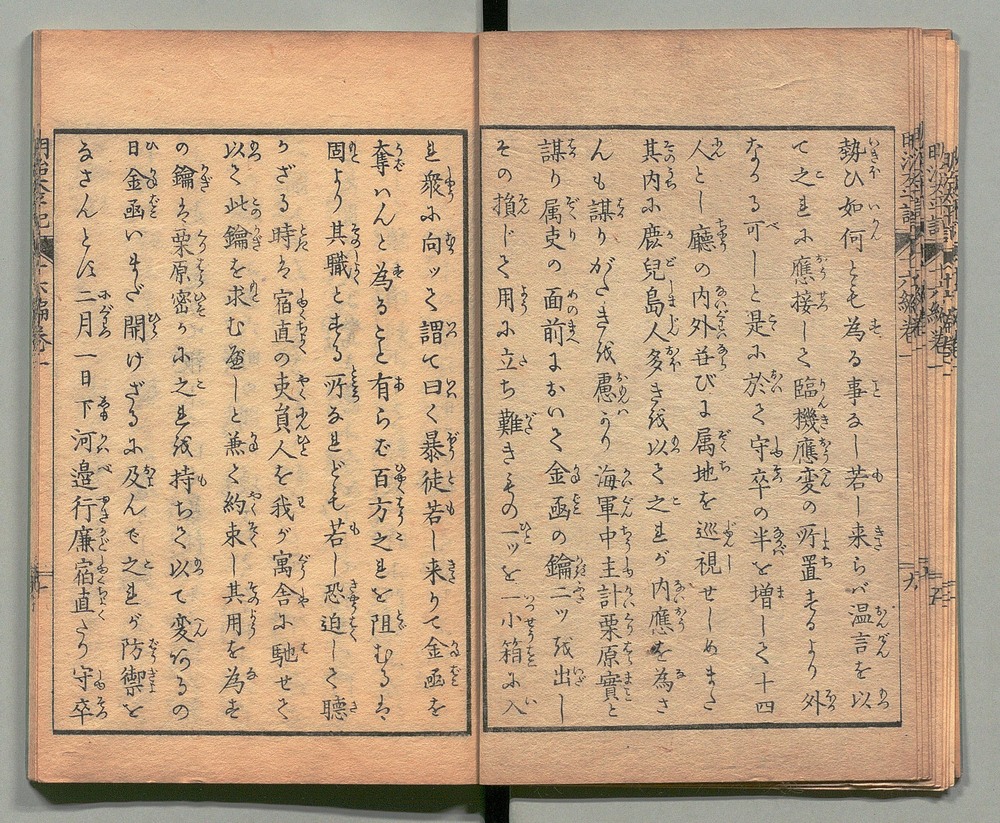 勢ひ如何とも為る事なし若し来らバ温言を以
て之れに應接して臨機應変の所置するより外
なかる可しと是に於て守卒の半を増して十四
人とし廳の内外并びに属地を巡視せしめまた
其内に鹿兒島人多きを以て之れが内應を為さ
んも謀りがたきを慮かり海軍中主計栗原實と
謀り属吏の面前において金函の鑰二ッを出し
その損じて用に立ち難きもの一ッを一小箱に入
れ衆に向ッて謂て曰く暴徒若し来りて金函を
奪いんと為ること有らむ百方之れを阻むるは
固より其職とする所なれども若し恐迫して聴
かざる時は宿直の吏員人を我が寓舎に馳せて
以て此鑰を求む遍しと兼て約束し其用を為す
の鑰は栗原密かに之れを持ちて以て変あるの
日金函いまだ開けざるに及んで之れが防禦を
なさんとす二月一日下河邉行廉宿直たり守卒
明治太平記
十六編巻一